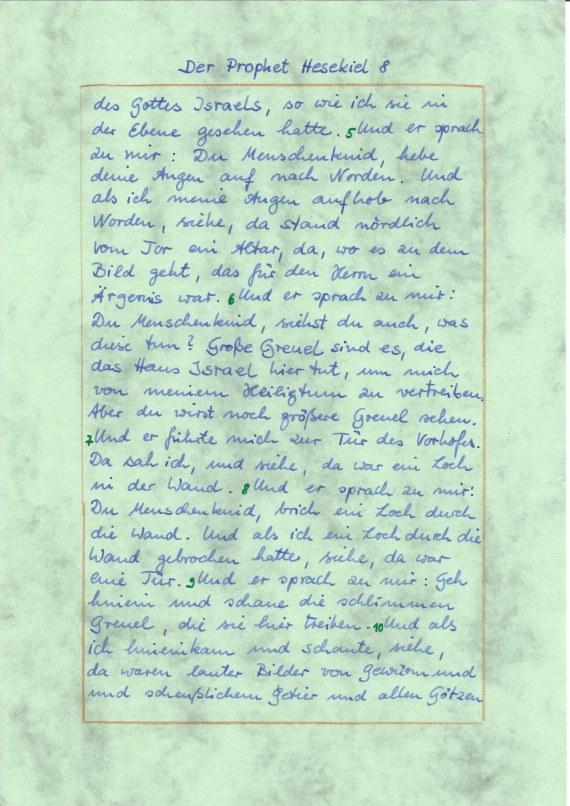 Der Prophet Hesekiel 8
des Gottes Israels, so wie ich sie in
der Ebene gesehen hatte. 5 Und er sprach
zu mir: Du Menschenkind, hebe
deine Augen auf nach Norden. Und
als ich meine Augen aufhob nach
Norden, siehe, da stand nördlich
vom Tor ein Altar, da, wo es zu dem
Bild geht, das für den Herrn ein
Ärgernis war. 6 Und er sprach zu mir:
Du Menschenkind, siehst du auch, was
diese tun? Große Greuel sind es, die
das Haus Israel hier tut, um mich
von meinem Heiligtum zu vertreiben.
Aber du wirst noch größere Greuel sehen.
7 Und er führte mich zur Tür des Vorhofes.
Da sah ich, und siehe, da war ein Loch
in der Wand. 8 Und er sprach zu mir:
Du Menschenkind, brich ein Loch durch
die Wand. Und als ich ein Loch durch die
Wand gebrochen hatte, siehe, da war
eine Tür. 9 Und er sprach zu mir: Geh
hinein und schaue die schlimmen
Greuel, die sie hier treiben. 10 Und als
ich hineinkam und schaute, siehe,
da waren lauter Bilder von Gewürm und
und scheußlichem Getier und allen Götzen